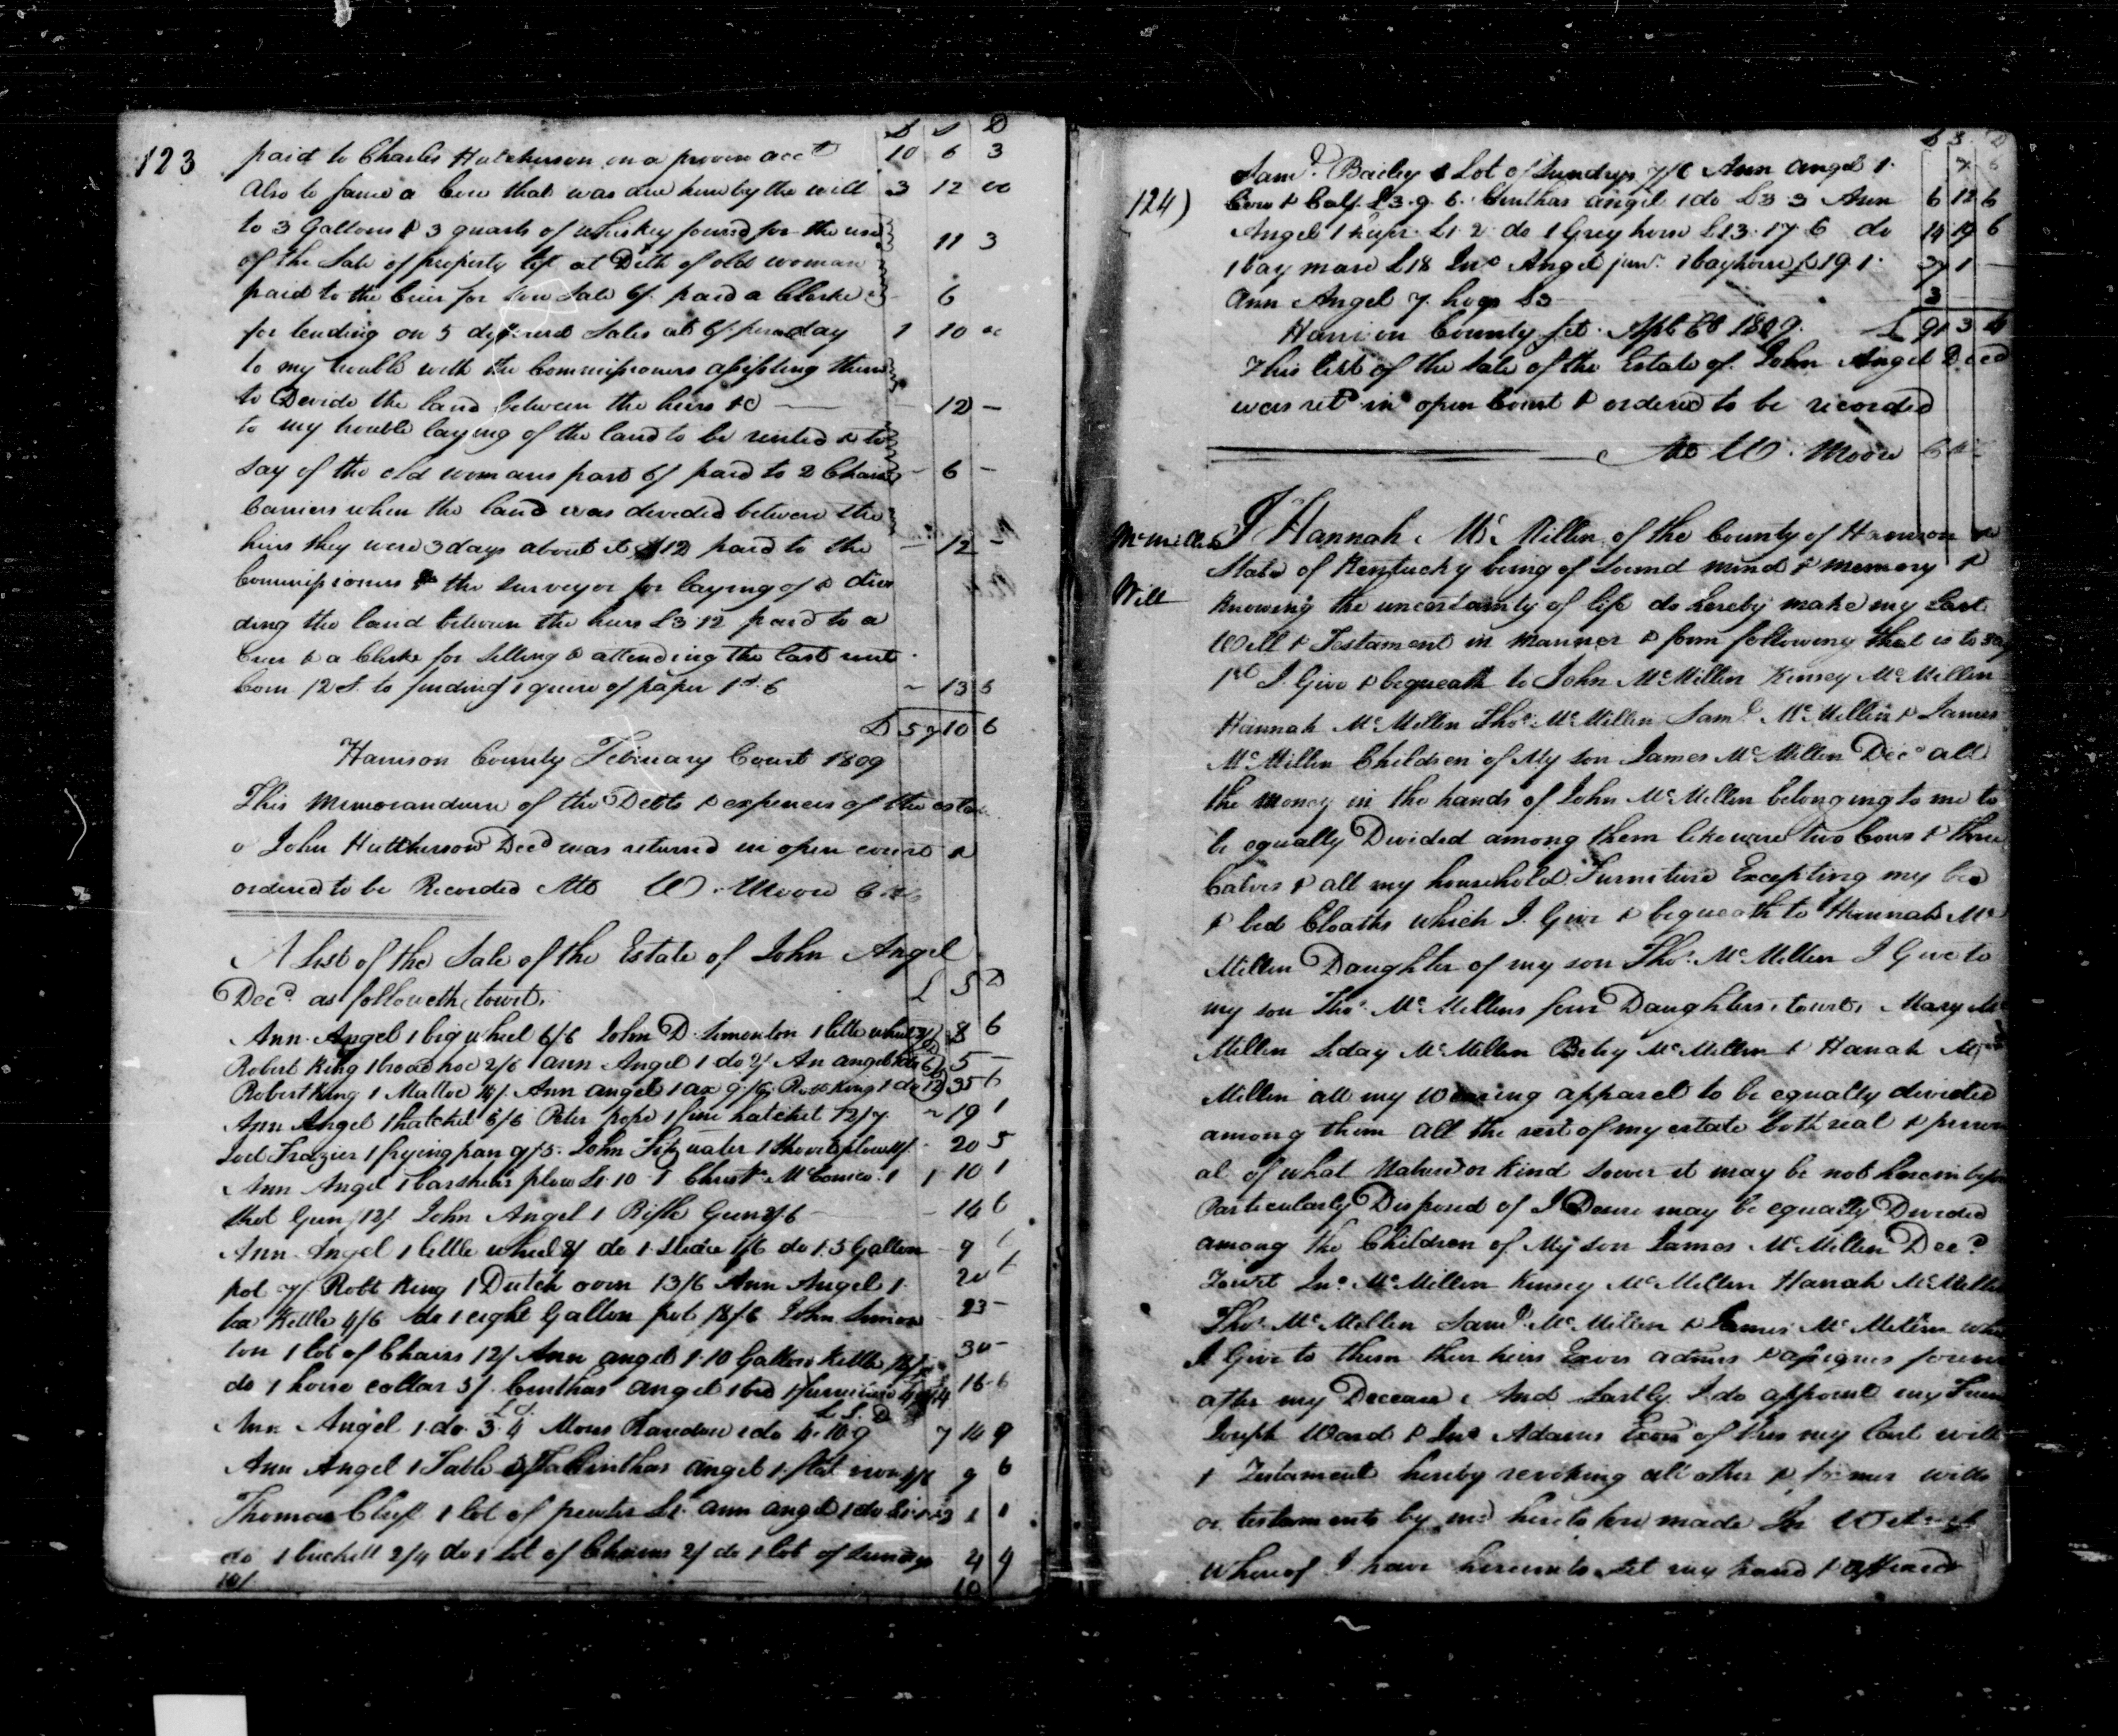 123
£ S D
paid to Charles Hutcherson on a proven acct 10 6 3
Also to same a Cow that was due him by the will 3 12 00
to 3 Gallons & 3 quarts of whiskey found for the use
of the Sale of property left at Deth of old woman 11 3
paid to the Crier for Sale 6/. paid a Clerke - 6
for tending on 5 different Sales at 6/. per day 1 10 00
to my trouble with the Commissioners assisting them
to Devide the land between the heirs &c 12 -
to my trouble laying of the land to be rented & to
say of the old womans part 6/ paid to 2 Chain - 6 -
Carriers when the land was devided between the
heirs they were 3 days about it 12 paid to the - 12 -
Commissioners & the surveyor for laying of & divi
ding the land between the heirs £3.12 paid to a
Crier & a Clerke for Selling & attending the last rent
Corn 12/. to finding 1 quire of paper 1s. 6 - 13 6
£ 57 10 6
Harrison County Febuary Court 1809
This Memorandum of the Debts & expences of the estate
o John Hutcherson Decd was returned in open court &
ordered to be Recorded Att W. Moore
A List of the Sale of the Estate of John Angel
Decd. as followeth, towit, £ S D
Ann Angel 1 big wheel 6/6 John D. Simonton 1 little wheel 2/ 8 6
Robert King 1 broad hoe 2/6 ann Angel 1 do 2/ An angel 5 -
Robert King 1 Mattoc Ann angel 1 ax 9/6 Robt King 1 do 12 35 6
Ann Angel 1 hatchel 6/6 Peter pope 1 fine hatchel 12/7 ~ 19 1
Joel Frazier 1 frying pan 9/5. John Fitzwater 1 Shovel plow 11/. 20 5
Ann Angel 1 barshear plow £1.10.1 Christr. McConico. 1 1 10 1
shot Gun 12/. John Angel 1 Rifle Gun 2/.6 - 14 6
Ann Angel 1 little wheel do 1 1/6 do 1. 5 Gallon 9
pot 7/. Robt King 1 Dutch oven 13/6 Ann Angel 1 20
tea Kettle 4/6 do 1 eight Gallon pot 18/.6 John Simon 23 -
ton 1 lot of Chairs 12/ Ann angel 1. 10 Gallon Kettle 18/. 30 -
do 1 horse collar 5/. angel 1 bed & furniture 16 6
Ann Angel 1. do. 3. 4 1 do 4. 10. 9 7 14 9
Ann Angel 1 Table angel 1 flat iron 9 6
Thomas 1 lot of pewter £1. ann angel 1 do 1 1
do 1 buckett 2/4 do 1 lot of Chains 2/ do 1 lot of sundrys 4 4
10/ 10
£ S D
Saml. Bailey 1 Lot of Sundrys 7/6 Ann Angel 1 7 6
124)
Cow & Calf. £3.9.6. angel 1 do £3.3 Ann 6 12 6
Angel 1 heifer £1.2. do 1 Grey horse £13.17.6 do 14 19 6
1 bay mare £18 Jno. Angel junr. 1 bay horse £19.1 37 1 -
Ann Angel 7 hogs £3 3
Harrison County Sct. 1809. £ 91 3
This list of the Sale of the Estate of John Angel Decd
was retd in open Court & ordered to be recorded
Att W. Moore
McMillen
Will
I Hannah McMillen of the County of Harrison &
State of Kentucky being of sound mind & memory &
knowing the uncertainty of life do hereby make my Last
Will & Testament in manner & form following that is to say
1st I Give & bequeath to John McMillen Kinsey McMillen
Hannah McMillen Thos. McMillen Saml. McMillen & James
McMillen Children of My son James McMillen Decd all
the money in the hands of John McMillen belonging to me to
be equally Devided among them likewise two Cows & three
Calves & all my household Furniture Excepting my bed
& bed Cloaths which I Give & bequeath to Hannah Mc
Millen Daughter of my son Thos. McMillen I Give to
my son Thos. McMillens four Daughters, towit, Mary Mc
Millen McMillen Betsy McMillen & Hanah Mc
Millen all my Wearing apparel to be equally devided
among them All the rest of my estate both real & person
al of what Nature or Kind soever it may be not herein before
Particularly Disposed of I Desire may be equally Devided
among the Children of My son James McMillen Decd.
Towit Jno. McMillen Kinsey McMillen Hanah McMillen
Thos. McMillen Saml. McMillen & James McMillen who
I Give to them their heirs Exors adms & assignes forever
after my Decease, And Lastly I do appoint my Friend
Joseph Ward & Jno. Adams Exors of this my last will
& Testament hereby revoking all other & former wills
or testaments by me heretofore made In Witness
whereof I have hereunto set my hand & affixed